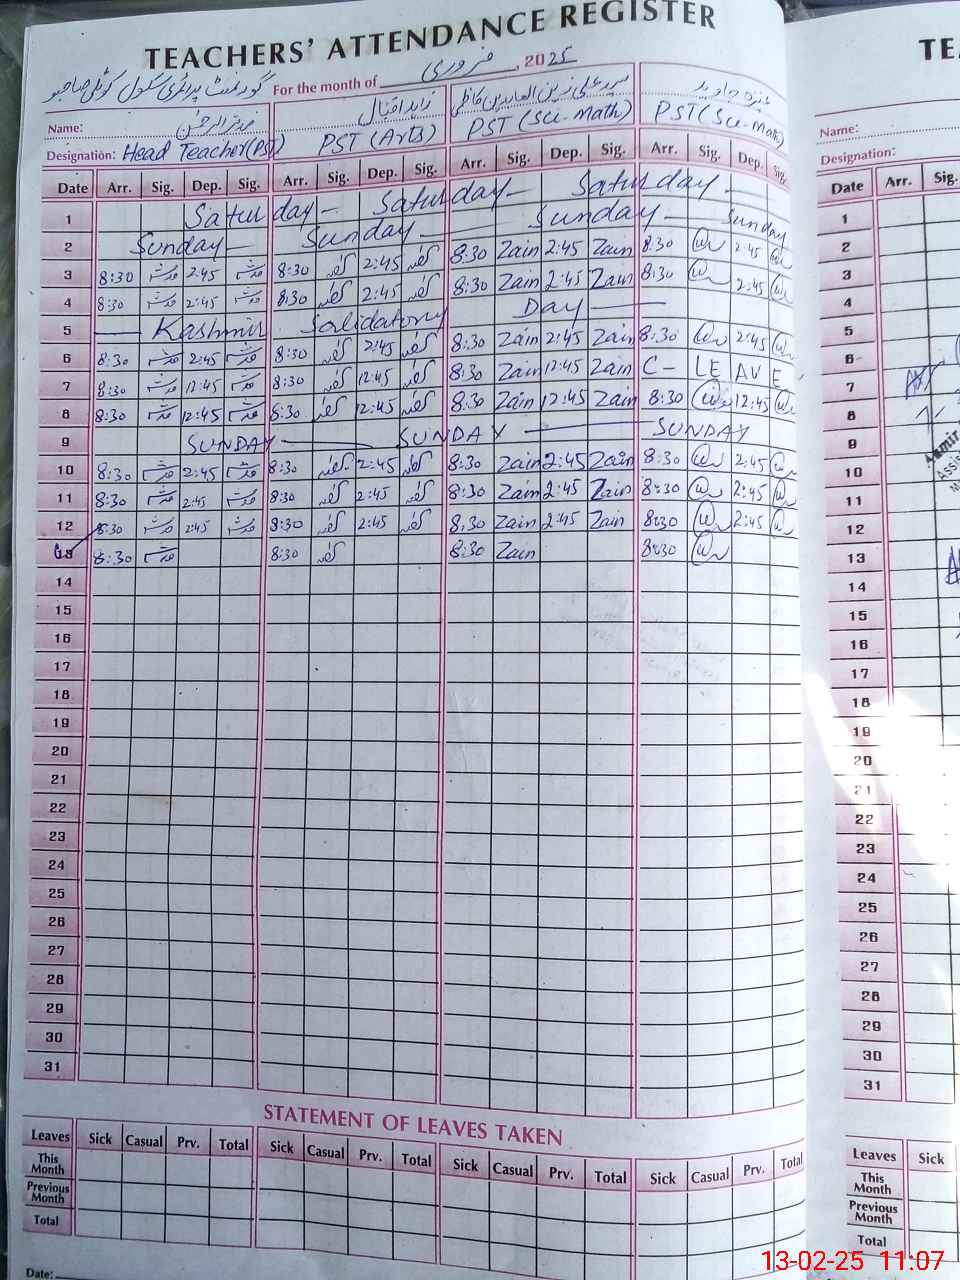 TEACHERS' ATTENDANCE REGISTER
گورنمنٹ پرائمری سکول کوٹلی صاحبو For the month of فروری, 2025
Name: زاہد اقبال سید علی زین العابدین کاظمی
Designation: Head Teacher(PST) PST (Arts) PST (Sci-Math) PST (Sci-Math)
Date Arr. Sig. Dep. Sig. Arr. Sig. Dep. Sig. Arr. Sig. Dep. Sig. Arr. Sig. Dep. Sig.
1 Saturday Saturday Saturday
2 Sunday Sunday Sunday Sunday
3 8:30 2:45 8:30 2:45 8:30 Zain 2:45 Zain 8:30 2:45
4 8:30 2:45 8:30 2:45 8:30 Zain 2:45 Zain 8:30 2:45
5 Kashmir Solidatory Day
6 8:30 2:45 8:30 2:45 8:30 Zain 2:45 Zain 8:30 2:45
7 8:30 12:45 8:30 12:45 8:30 Zain 12:45 Zain C- LEAVE
8 8:30 12:45 8:30 12:45 8:30 Zain 12:45 Zain 8:30 12:45
9 SUNDAY SUNDAY SUNDAY
10 8:30 2:45 8:30 2:45 8:30 Zain 2:45 Zain 8:30 2:45
11 8:30 2:45 8:30 2:45 8:30 Zain 2:45 Zain 8:30 2:45
12 8:30 2:45 8:30 2:45 8:30 Zain 2:45 Zain 8:30 2:45
13 8:30 8:30 8:30 Zain 8:30
14
15
16
17
18
19
20
21
22
23
24
25
26
27
28
29
30
31
STATEMENT OF LEAVES TAKEN
Leaves Sick Casual Prv. Total Sick Casual Prv. Total Sick Casual Prv. Total Sick Casual Prv. Total
This Month
Previous Month
Total
Date:
TE
Name:
Designation:
Date Arr. Sig.
1
2
3
4
5
6
7
8
9
10
11
12
13
14
15
16
17
18
19
20
21
22
23
24
25
26
27
28
29
30
31
Leaves Sick
This Month
Previous Month
Total
13-02-25 11:07